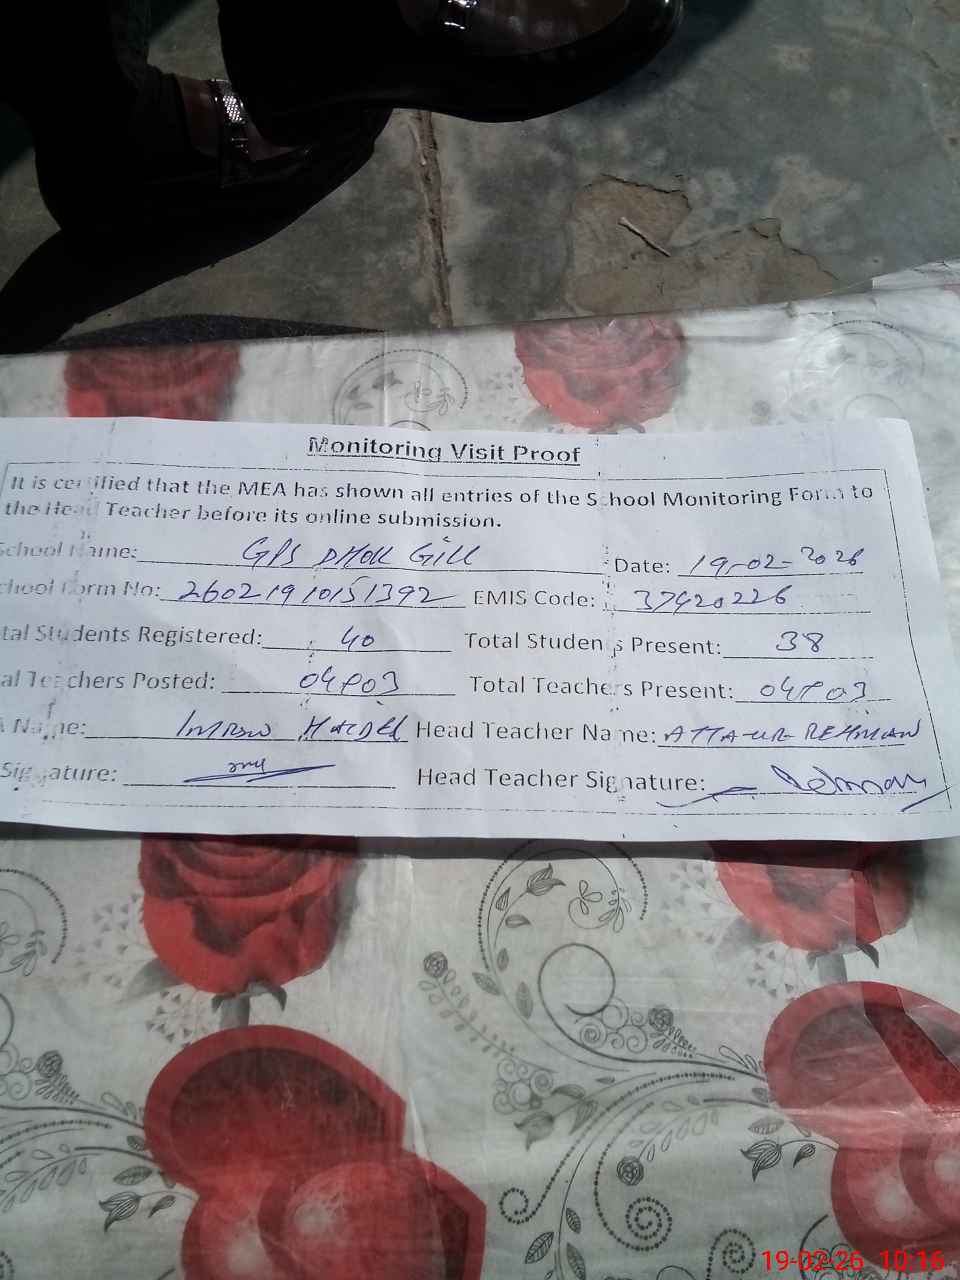 Monitoring Visit Proof
It is certified that the MEA has shown all entries of the School Monitoring Form to
the Head Teacher before its online submission.
School Name: GPS DHOK GILL Date: 19-02-2026
chool Form No: 26021910151392 EMIS Code: 37420226
tal Students Registered: 40 Total Students Present: 38
al Teachers Posted: 04P03 Total Teachers Present: 04P03
Name: Imran Head Teacher Name: ATTA-UR-REHMAN
Signature: Head Teacher Signature: Rehman
19-02-26 10:16